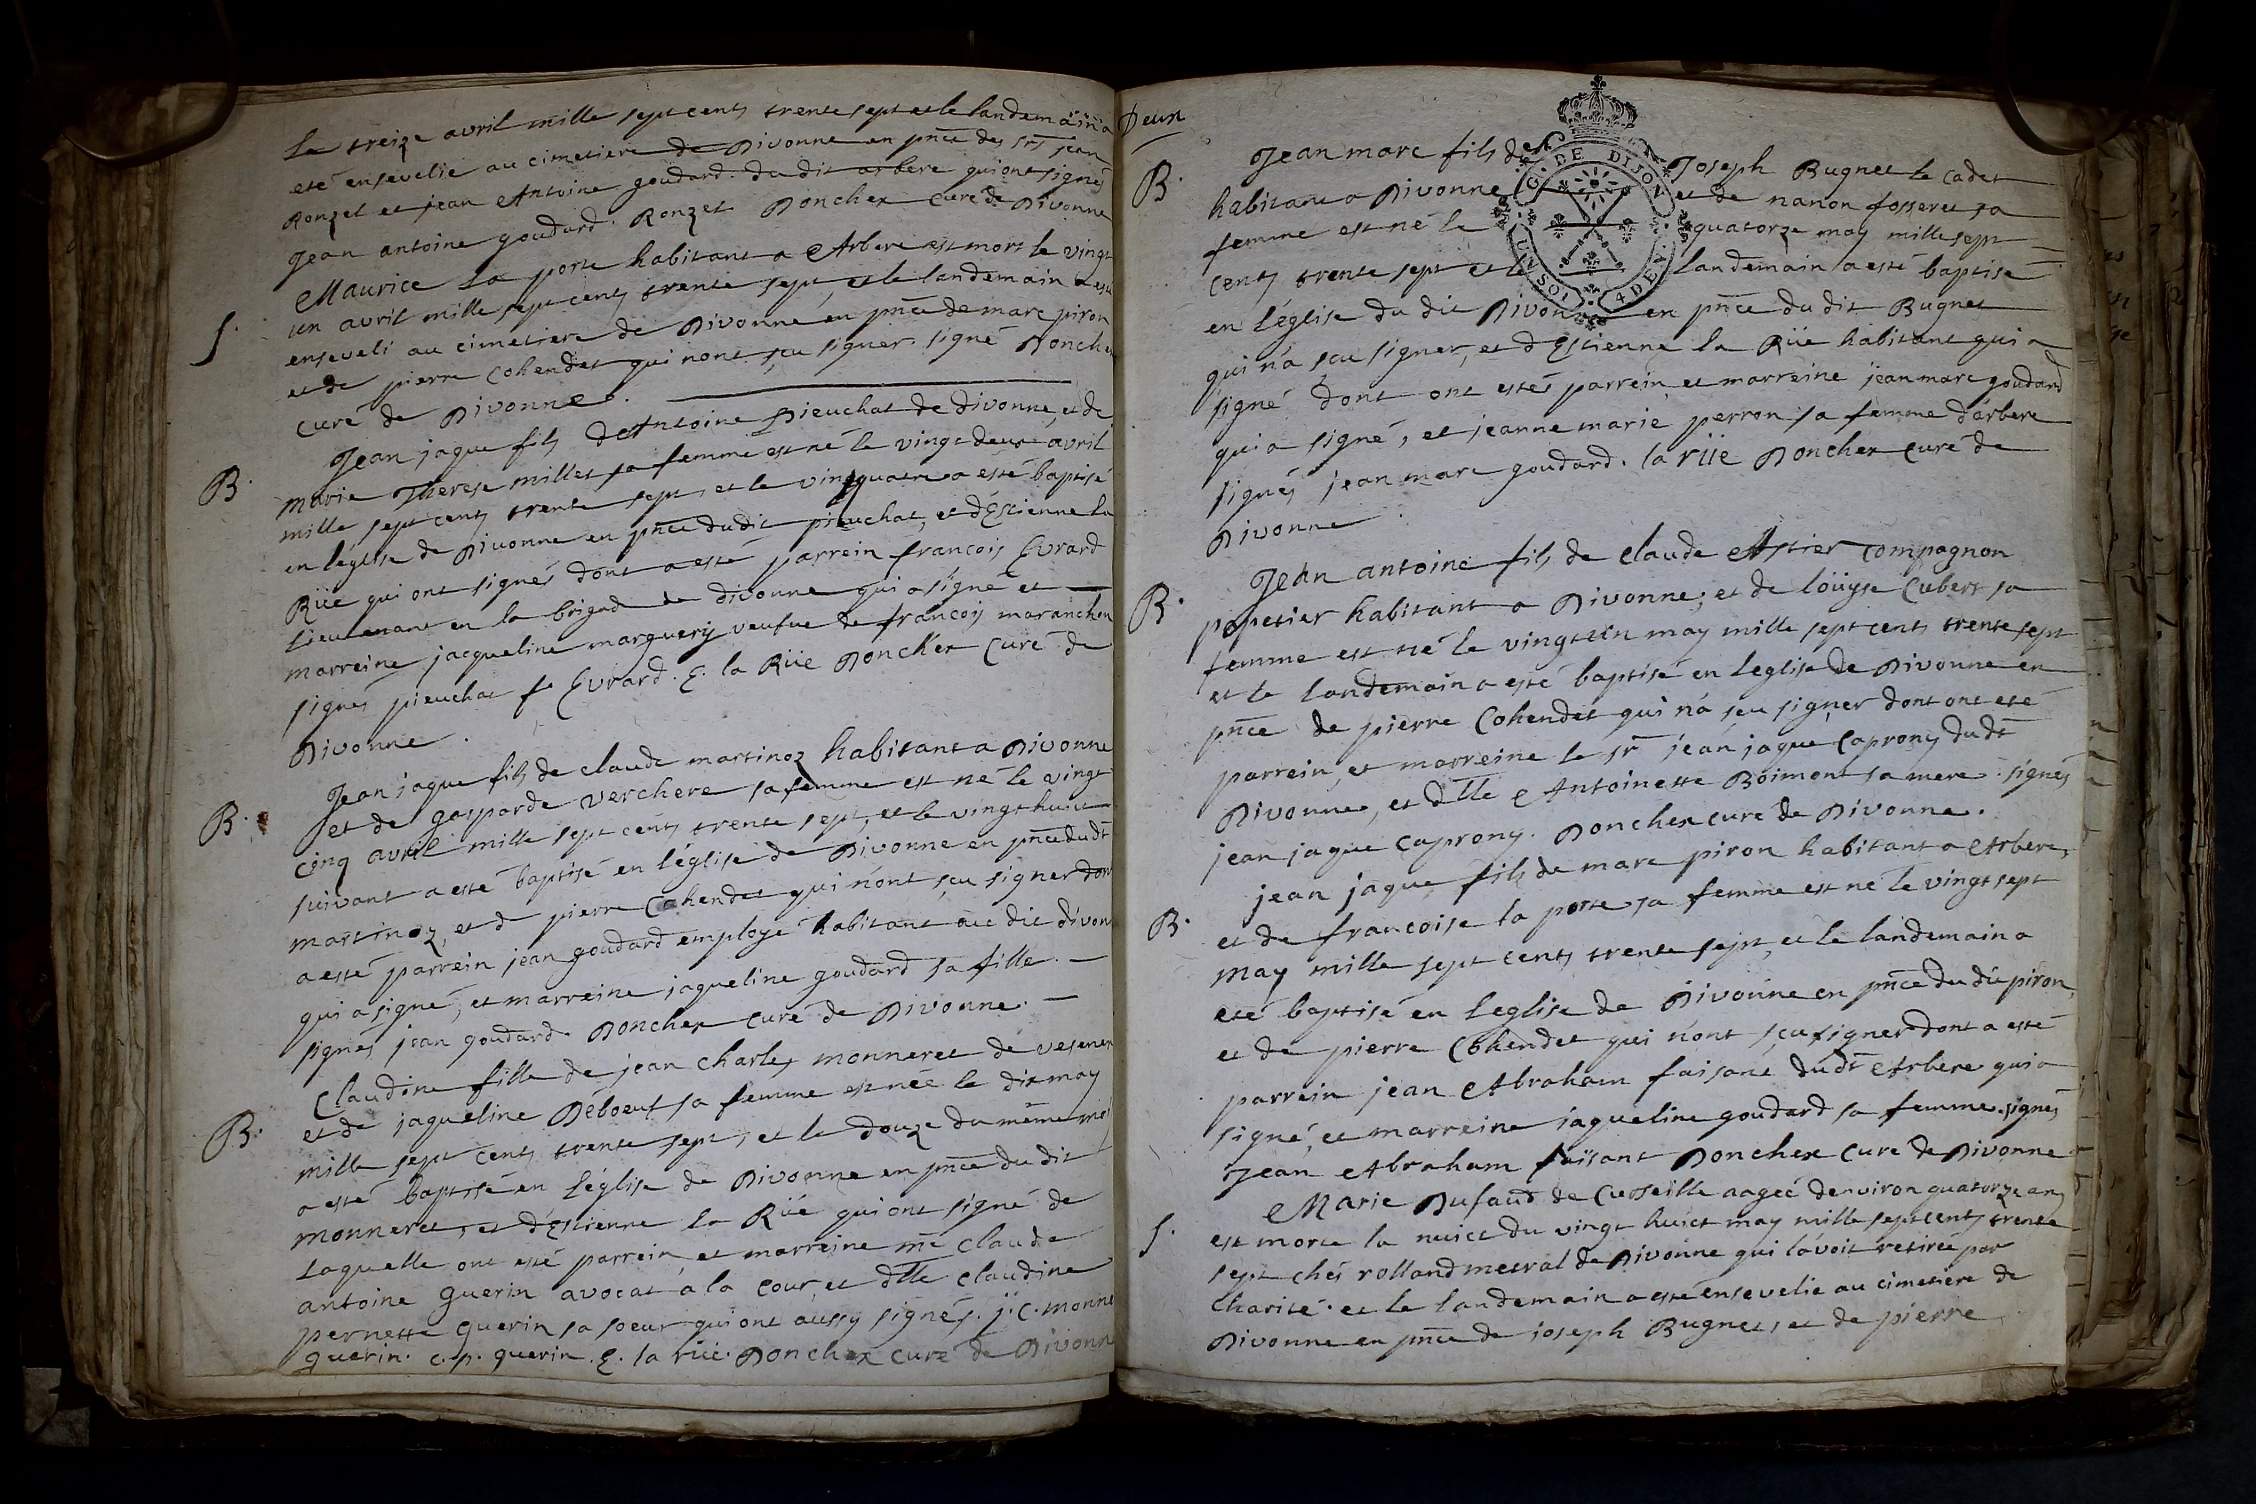 le treize avril mille sept cents trente sept et le landemain a
eté ensevelie au cimetiere de Divonne en pñce des srs jean
Ronzet et jean Antoine goudard du dit arbere qui ont signés
Jean antoine goudard. Ronzet Doncher curé de Divonne
S. Maurice La porte habitant a Arbere est mort le vingt
un avril mille sept cents trente sept, et le landemain a esté
enseveli au cimetiere de Divonne en pñce de marc piron
et de pierre Cohendet qui nont sçu signer signé Doncher
curé de Divonne.
B. Jean jaque fils d'Antoine Pieuchat de divonne, et de
marie Therese millet sa femme est né le vingt deux avril
mille sept cents trente sept, et le vingtquatre a esté baptisé
en l'église de Divonne en pñce dudit pieuchat, et d'Estienne la
Rüe qui ont signés dont a esté parrein françois Evrard
Lieutenant en la brigad de divonne qui a signé et
marreine jacqueline marguery veufue de françois maranchon
signés pieuchat f. Evrard. E. la Rüe Doncher Curé de
Divonne.
B. Jean jaque fils de claude martinoz habitant a Divonne
et de gasparde verchere sa femme est né le vingt
cinq avril mille sept cents trente sept, et le vingt huict
suivant a esté baptisé en l'église de Divonne en pñce dudt
martinoz, et d pierre Cohendet qui n'ont sçu signer dont
a esté parrein jean goudard employé habitant au dit divonne
qui a signé, et marreine jaqueline goudard sa fille.
signés jean goudard. Doncher curé de Divonne.
B. Claudine fille de jean charles monneret de vesenex
et de jaqueline Déboeuf sa femme est née le dix may
mille sept cents trente sept, et le douze du même mois
a esté baptisé en l'église de Divonne en pñce du dit
monneret, et d'Estienne la Rüe qui ont signé de
laquelle ont esté parrein, et marreine mē Claude
antoine guerin avocat a la cour, et dlle claudine
pernette guerin sa soeur qui ont aussy signés. j. C. monneret
guerin. c. p. guerin. E. la rüe. Doncher curé de Divonne
Deux
G. DE DIJON
UN SOL 4 DEN.
B. Jean marc fils de Joseph Bugnet le cadet
habitant a Divonne et de nanon fosseret sa
femme est né le quatorze may mille sept
cents trente sept et le landemain a esté baptisé
en l'église du dit Divonne en pñce du dit Bugnet
qui n'a sçu signer, et d'Estienne la Rüe habitant qui a
signé dont ont estés parrein et marreine jean marc goudard
qui a signé, et jeanne marie perron sa femme d'arbere
signés jean marc goudard. la rüe Doncher curé de
Divonne.
B. Jean antoine fils de claude Astier compagnon
papetier habitant a Divonne, et de loüyse Cubert sa
femme est né le vingt un may mille sept cents trente sept
et le landemain a esté baptisé en l'eglise de Divonne en
pñce de pierre Cohendet qui n'a sçu signer dont ont eté
parrein, et marreine le sr jean jaque Caprony dudt
Divonne, et dlle Antoinette Boimont sa mere. signés
jean jaque Caprony. Doncher curé de Divonne.
B. jean jaque fils de marc piron habitant a Arbere,
et de francoise la porte sa femme est né le vingt sept
may mille sept cents trente sept, et le landemain a
eté baptisé en l'eglise de Divonne en pñce du dit piron,
et de pierre Cohendet qui n'ont sçu signer dont a esté
parrein jean Abraham faisant dudt Arbere qui a
signé, et marreine jaqueline goudard sa femme. signés
Jean Abraham faisant Doncher curé de Divonne
S. Marie Dufaud de Crosseille aageé d'environ quatorze ans
est morte la nuict du vingt huict may mille sept cents trente
sept chés rolland mestral de Divonne qui l'avoit retireé par
Charité. et le landemain a esté ensevelie au cimetiere de
Divonne en pñce de joseph Bugnet, et de pierre